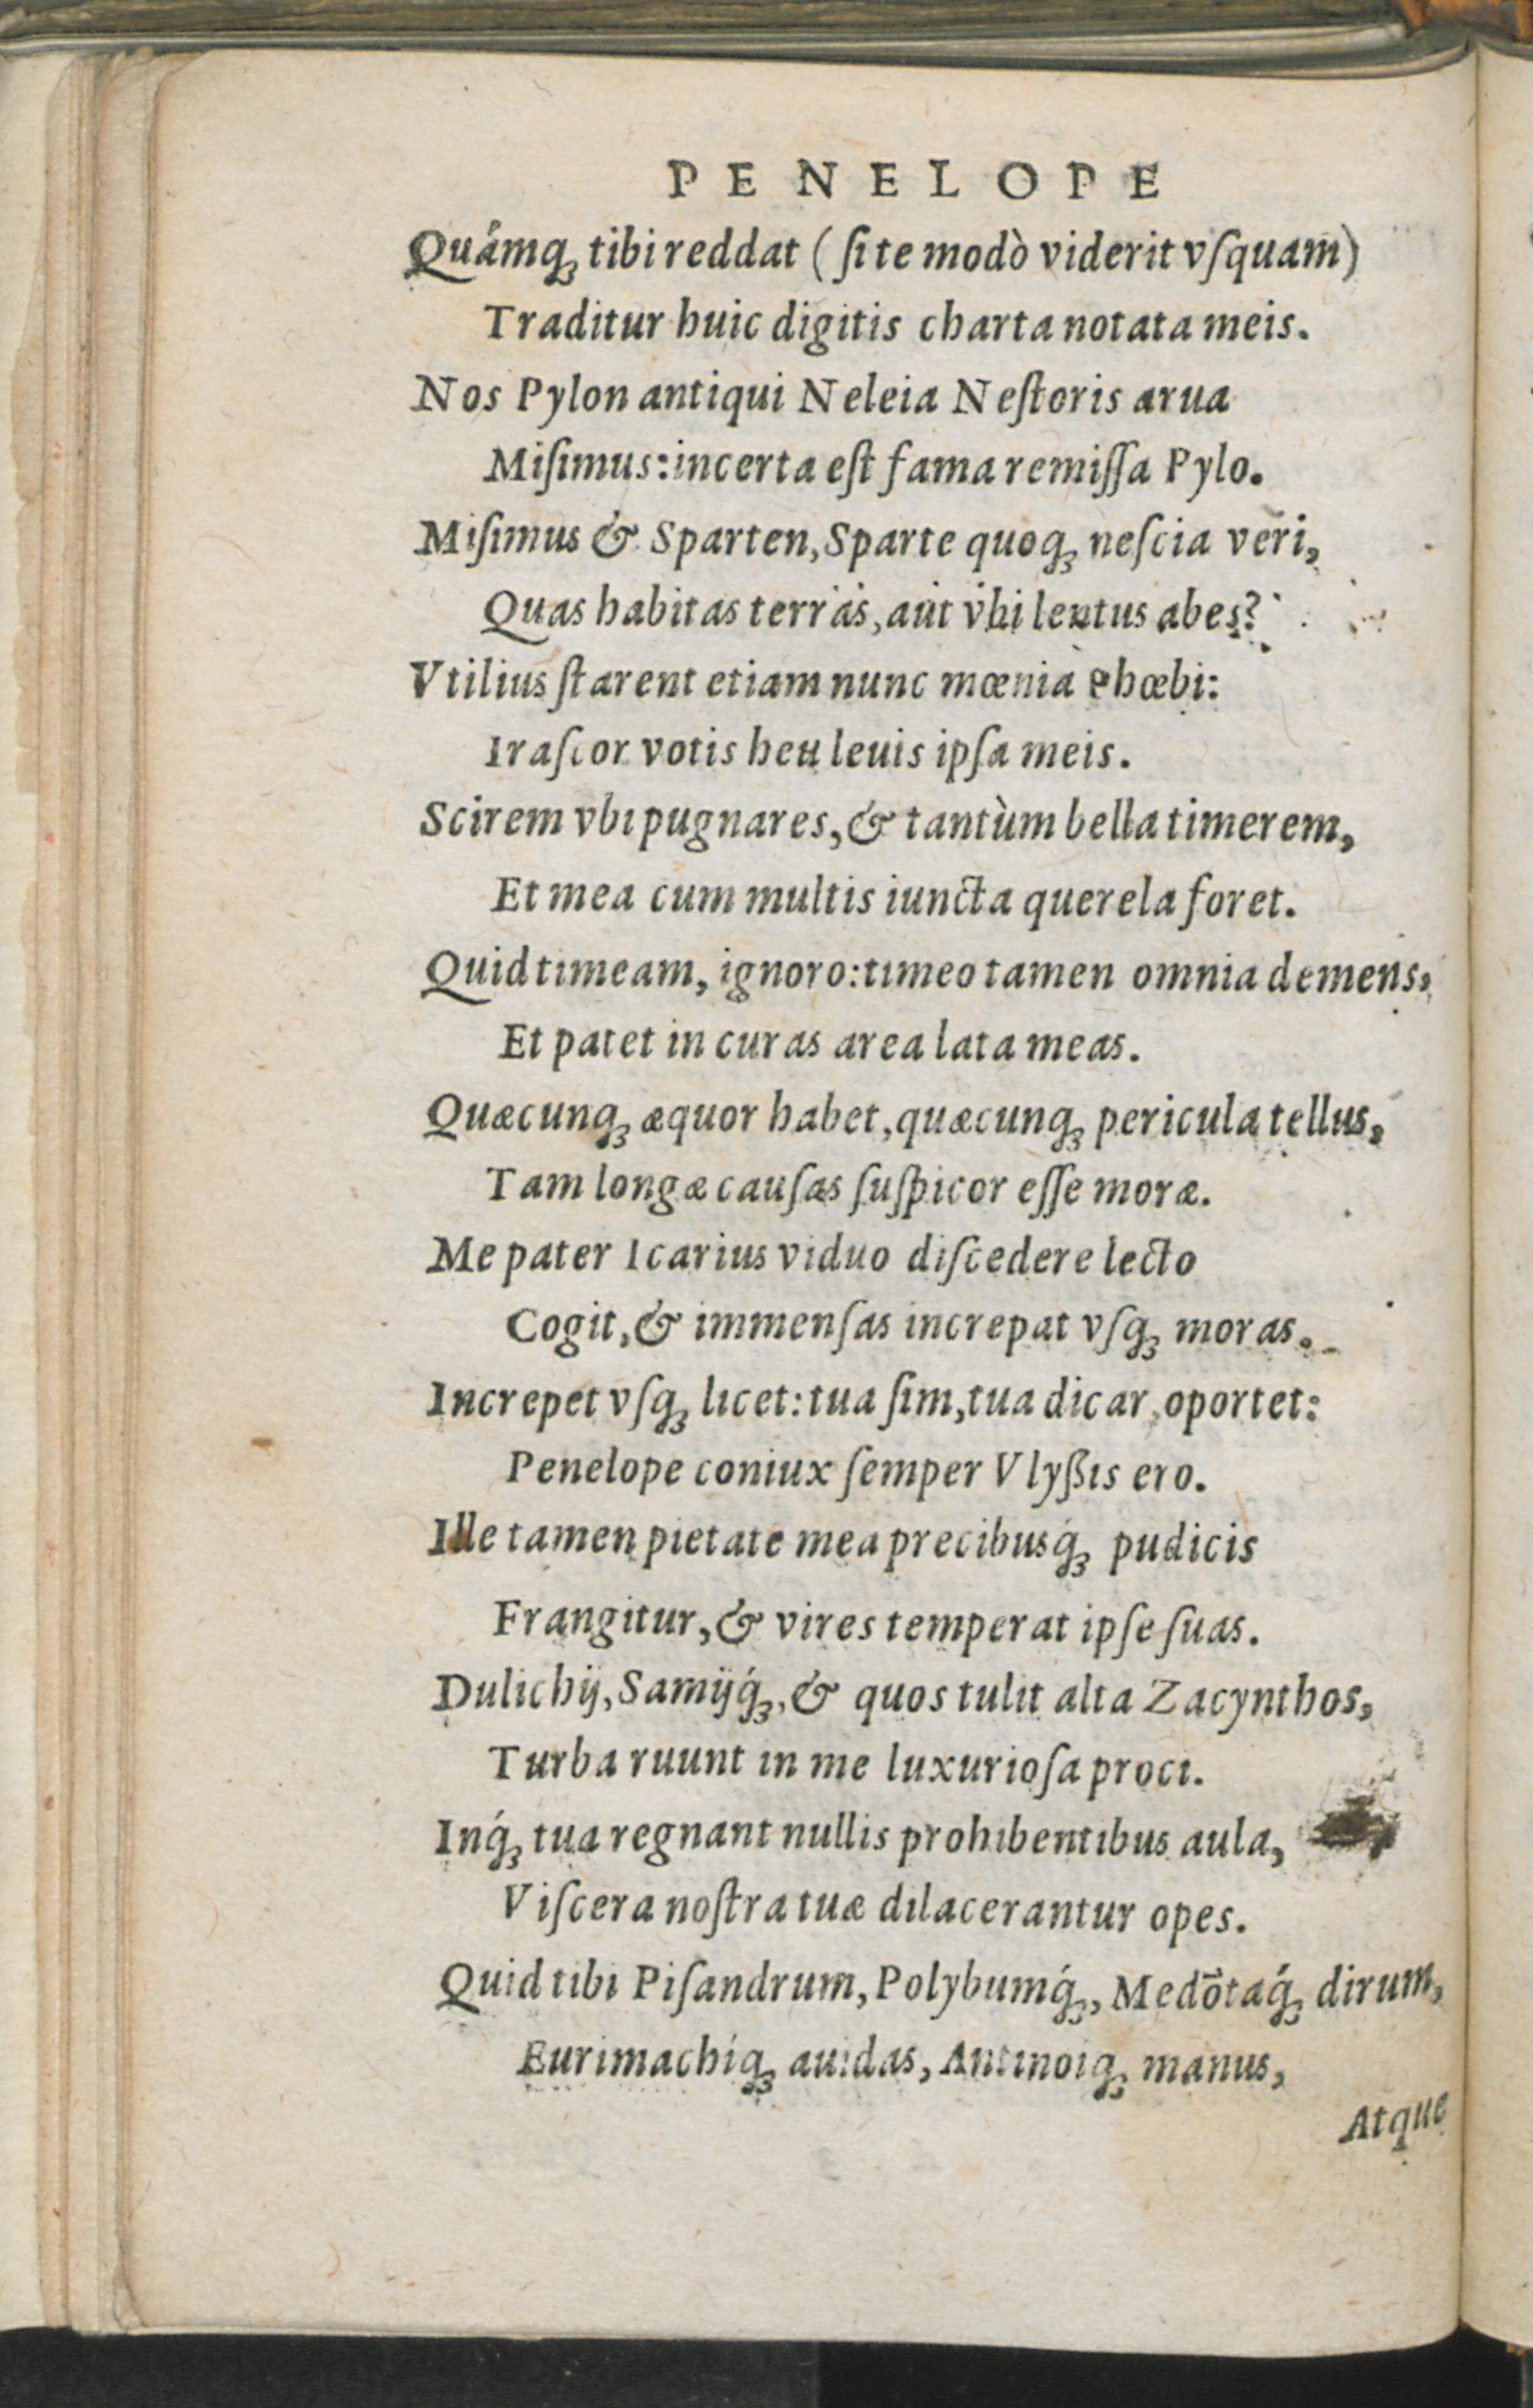 PENELOPE
Quámq; tibi reddat (ſi te modò viderit vſquam)
Traditur huic digitis charta notata meis.
Nos Pylon antiqui Neleia Neſtoris arua
Miſimus: incerta eſt fama remiſſa Pylo.
Miſimus & Sparten, Sparte quoq; neſcia veri,
Quas habitas terras, aut vbi lentus abes?
Vtilius ſtarent etiam nunc mœnia Phœbi:
Iraſcor votis heu leuis ipſa meis.
Scirem vbi pugnares, & tantùm bella timerem,
Et mea cum multis iuncta querela foret.
Quid timeam, ignoro: timeo tamen omnia demens,
Et patet in curas area lata meas.
Quæcunq; æquor habet, quæcunq; pericula tellus,
Tam longæ cauſas ſuſpicor eſſe moræ.
Me pater Icarius viduo diſcedere lecto
Cogit, & immenſas increpat vſq; moras.
Increpet vſq; licet: tua ſim, tua dicar, oportet:
Penelope coniux ſemper Vlyßis ero.
Ille tamen pietate mea precibusq́; pudicis
Frangitur, & vires temperat ipſe ſuas.
Dulichij, Samijq́;, & quos tulit alta Zacynthos,
Turba ruunt in me luxurioſa proci.
Inq́; tua regnant nullis prohibentibus aula,
Viſcera noſtra tuæ dilacerantur opes.
Quid tibi Piſandrum, Polybumq́;, Medōtaq́; dirum,
Eurimachíq; auidas, Antinoiq; manus,
Atque